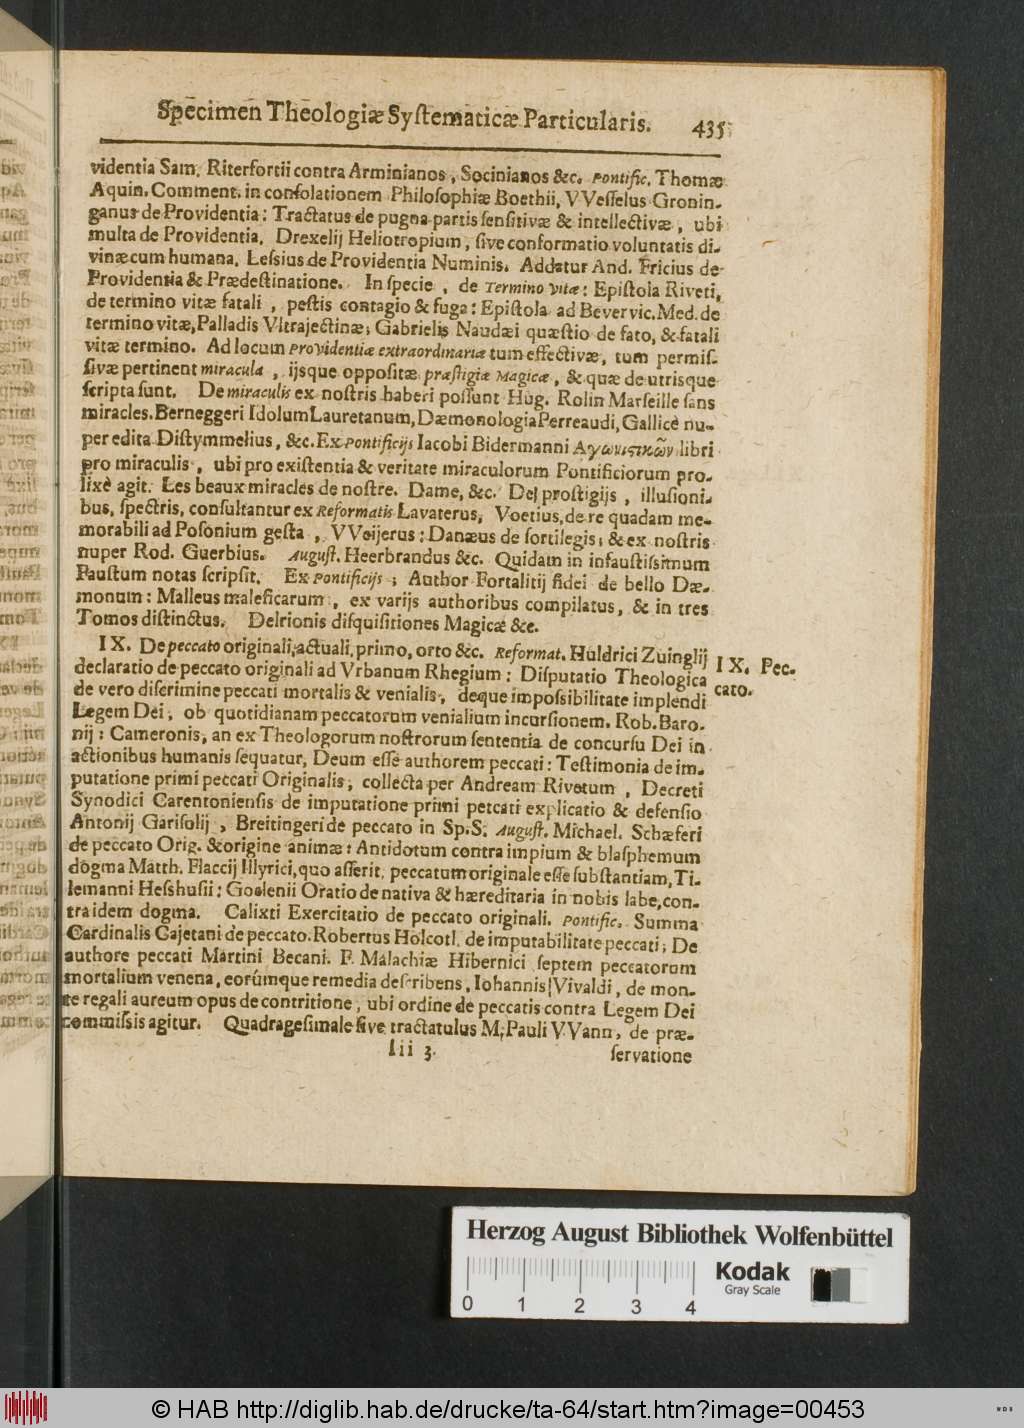 Specimen Theologiæ Syſtematicæ Particularis. 435
videntia Sam. Riterfortii contra Arminianos, Socinianos &c. Pontific. Thomæ
Aquin. Comment. in conſolationem Philoſophiæ Boethii, VVeſſelus Gronin-
ganus de Providentia: Tractatus de pugna partis ſenſitivæ & intellectivæ, ubi
multa de Providentia. Drexelij Heliotropium, ſive conformatio voluntatis di-
vinæ cum humana. Leſsius de Providentia Numinis. Addatur And. Fricius de
Providentia & Prædeſtinatione. In ſpecie, de Termino vitæ: Epiſtola Riveti,
de termino vitæ fatali, peſtis contagio & fuga: Epiſtola ad Bevervic. Med. de
termino vitæ, Palladis Vltrajectinæ; Gabrielis Naudæi quæſtio de fato, & fatali
vitæ termino. Ad locum Providentiæ extraordinariæ tum effectivæ, tum permiſ-
ſivæ pertinent miracula, ijsque oppoſitæ præſtigiæ Magicæ, & quæ de utrisque
ſcripta ſunt. De miraculis ex noſtris haberi poſſunt Hug. Rolin Marſeille ſans
miracles. Berneggeri Idolum Lauretanum, Dæmonologia Perreaudi, Gallicè nu-
per edita Diſtymmelius, &c. Ex Pontificijs Iacobi Bidermanni Αγωνιςικῶν libri
pro miraculis, ubi pro exiſtentia & veritate miraculorum Pontificiorum pro-
lixè agit. Les beaux miracles de noſtre. Dame, &c. De proſtigijs, illuſioni-
bus, ſpectris, conſultantur ex Reformatis Lavaterus, Voetius, de re quadam me-
morabili ad Poſonium geſta, VVeijerus: Danæus de ſortilegis; & ex noſtris
nuper Rod. Guerbius. Auguſt. Heerbrandus &c. Quidam in infauſtiſsimum
Fauſtum notas ſcripſit. Ex Pontificijs; Author Fortalitij fidei de bello Dæ-
monum: Malleus maleficarum, ex varijs authoribus compilatus, & in tres
Tomos diſtinctus. Delrionis diſquiſitiones Magicæ &c.
IX. De peccato originali, actuali, primo, orto &c. Reformat. Huldrici Zuinglij
IX. Pec-
cato.
declaratio de peccato originali ad Vrbanum Rhegium: Diſputatio Theologica
de vero diſcrimine peccati mortalis & venialis, deque impoſsibilitate implendi
Legem Dei, ob quotidianam peccatorum venialium incurſionem. Rob. Baro-
nij: Cameronis, an ex Theologorum noſtrorum ſententia de concurſu Dei in
actionibus humanis ſequatur, Deum eſſe authorem peccati: Teſtimonia de im-
putatione primi peccati Originalis, collecta per Andream Rivetum, Decreti
Synodici Carentonienſis de imputatione primi peccati explicatio & defenſio
Antonij Gariſolij, Breitingeri de peccato in Sp. S. Auguſt. Michael. Schæferi
de peccato Orig. & origine animæ: Antidotum contra impium & blaſphemum
dogma Matth. Flaccij Illyrici, quo aſſerit, peccatum originale eſſe ſubſtantiam, Ti-
lemanni Heſshuſii: Goclenii Oratio de nativa & hæreditaria in nobis labe, con-
tra idem dogma. Calixti Exercitatio de peccato originali. Pontific. Summa
Cardinalis Cajetani de peccato. Robertus Holcotl. de imputabilitate peccati; De
authore peccati Martini Becani. F. Malachiæ Hibernici ſeptem peccatorum
mortalium venena, eorúmque remedia deſcribens, Iohannis Vivaldi, de mon-
te regali aureum opus de contritione, ubi ordine de peccatis contra Legem Dei
commiſsis agitur. Quadrageſimale ſive tractatulus M. Pauli VVann, de præ-
Iii 3. ſervatione
Herzog August Bibliothek Wolfenbüttel
Kodak
Gray Scale
0 1 2 3 4
© HAB http://diglib.hab.de/drucke/ta-64/start.htm?image=00453